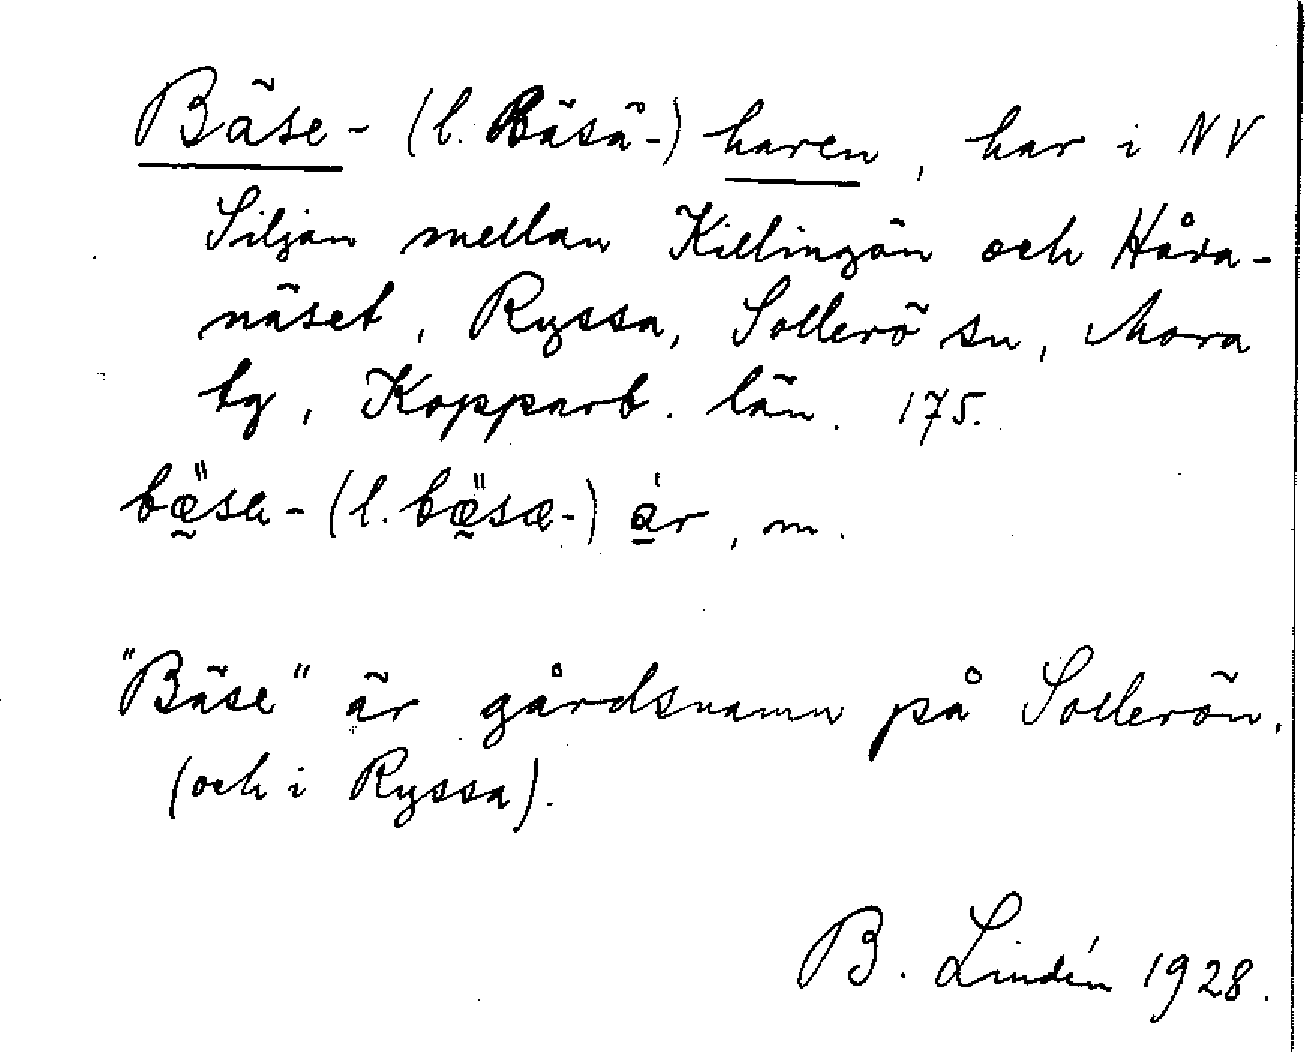 Bäse- (l. Bäsä-) haren, har i NV
Siljan mellan Killingön och Håra-
näset, Ryssa, Sollerö sn, Mora
tg, Kopparb. län. 175.
bæ̈sa- (l. bæ̈sæ-) ár, m.
"Bäse" är gårdsnamn på Sollerön.
(och i Ryssa).
B. Lindén 1928.